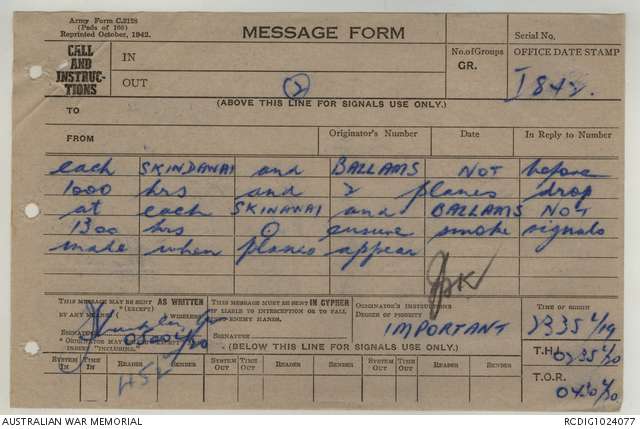 Army Form C.2128
(Pads of 100)
Reprinted October, 1942.
MESSAGE FORM
Serial No.
CALL
AND
INSTRUC-
TIONS
IN
OUT
(2)
No. of Groups
GR.
OFFICE DATE STAMP
I 842.
(ABOVE THIS LINE FOR SIGNALS USE ONLY.)
TO
FROM
Originator's Number
Date
In Reply to Number
each SKINDAWAI and BALLAMS NOT before
1000 hrs and 2 planes drop
at each SKINAWAI and BALLAMS NOT
1300 hrs O ensure smoke signals
made when planes appear
THIS MESSAGE MAY BE SENT AS WRITTEN
BY ANY MEANS (EXCEPT) WIRELESS
SIGNATURE
* ORIGINATOR MAY
INSERT "INCLUDING."
THIS MESSAGE MUST BE SENT IN CYPHER
IF LIABLE TO INTERCEPTION OR TO FALL
INTO ENEMY HANDS.
SIGNATURE
ORIGINATOR'S INSTRUCTIONS
DEGREE OF PRIORITY
IMPORTANT
TIME OF ORIGIN
2335 L/19
T.H.I.
0235 L/20
T.O.R.
0430 L/20
(BELOW THIS LINE FOR SIGNALS USE ONLY.)
SYSTEM IN
TIME IN
READER
SENDER
SYSTEM OUT
TIME OUT
READER
SENDER
SYSTEM OUT
TIME OUT
READER
SENDER
AUSTRALIAN WAR MEMORIAL
RCDIG1024077